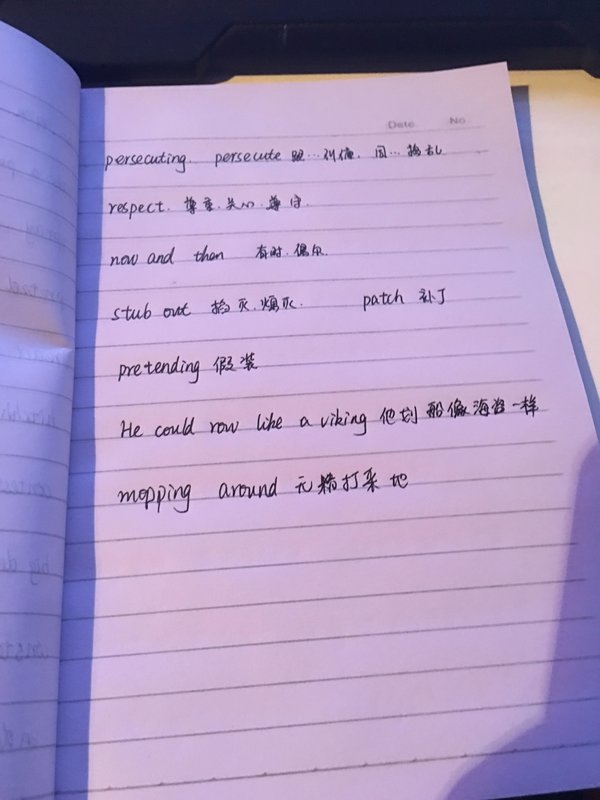 Date No
persecuting. persecute 跟…纠缠. 因…捣乱
respect. 尊重. 关心. 遵守.
now and than 有时. 偶尔.
stub out 掐灭. 熄灭. patch 补丁
pretending 假装
He could row like a viking 他划船像海盗一样
mopping around 无精打采地